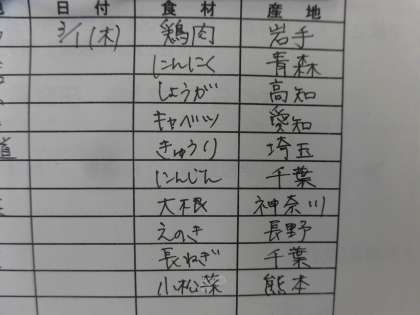 日付 食材 産地
3/1(木) 鶏肉 岩手
にんにく 青森
しょうが 高知
キャベツ 愛知
きゅうり 埼玉
にんじん 千葉
大根 神奈川
えのき 長野
長ねぎ 千葉
小松菜 熊本